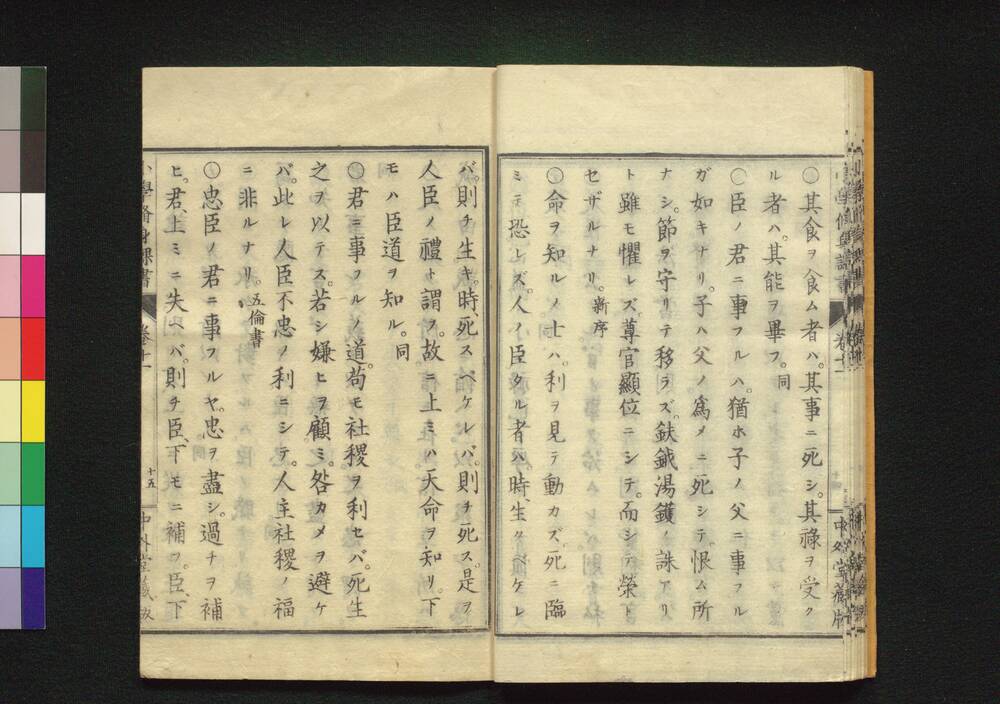 ○其食ヲ食ム者ハ。其事ニ死シ。其祿ヲ受ク
ル者ハ。其能ヲ畢フ。同
○臣ノ君ニ事フルハ。猶ホ子ノ父ニ事フル
ガ如キナリ。子ハ父ノ爲メニ死シテ。恨ム所
ナシ。節ヲ守リテ移ラズ。鈇鉞湯鑊ノ誅アリ
ト雖モ懼レズ。尊官顯位ニシテ。而シテ榮ト
セザルナリ。新序
○命ヲ知ルノ士ハ。利ヲ見テ動カズ。死ニ臨
ミテ恐レズ。人ノ臣タル者ハ。時、生クベケレ
バ。則チ生キ。時、死スベケレバ。則チ死ス。是ヲ
人臣ノ禮ト謂フ。故ニ上ミハ天命ヲ知リ。下
モハ臣道ヲ知ル。同
○君ニ事フルノ道。苟モ社稷ヲ利セバ。死生
之ヲ以テス。若シ嫌ヒヲ顧ミ。咎カメヲ避ケ
バ。此レ人臣不忠ノ利ニシテ。人主社稷ノ福
ニ非ルナリ。五倫書
○忠臣ノ君ニ事フルヤ。忠ヲ盡シ。過チヲ補
ヒ。君、上ミニ失ヘバ。則チ臣、下モニ補フ。臣、下
小學脩身課書
卷十一
十五
中外堂藏版